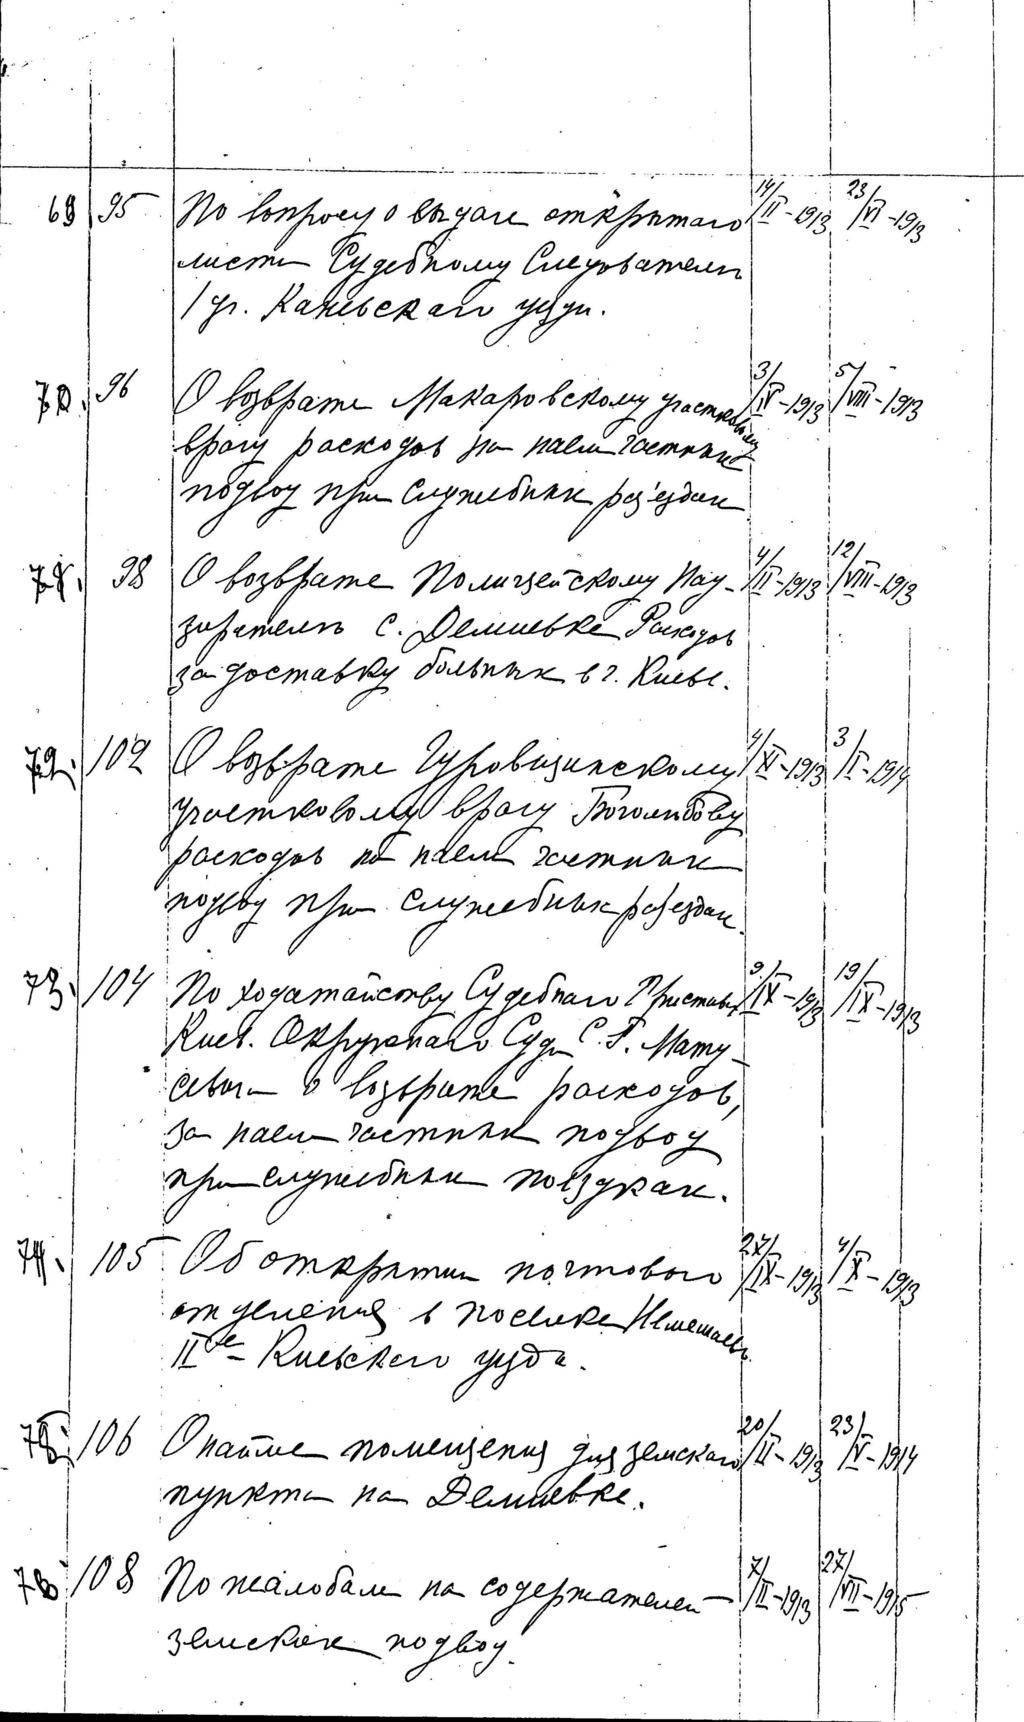 69 95 По вопросу о выдаче открытаго 14/II-1913 23/VI-1913
листа Судебному Следователю
1 уч. Каневскаго уезда.
70. 96 О возврате Макаровскому участковому 3/IV-1913 5/VIII-1913
врачу расходов на наем частных
подвод при служебных раз'ездах
71. 98 О возврате Полицейскому Над- 4/II-1913 12/VIII-1913
зирателю с. Демиевке Расходов
за доставку больных в г. Киев.
72. 102 О возврате Гуровщинскому 4/XI-1913 3/II-1914
участковому врачу Боголюбову
расходов по наем частных
подвод при служебных раз'ездах.
73. 104 По ходатайству Судебнаго Пристава 9/IX-1913 19/IX-1913
Киев. Окружнаго Суда С. Г. Мату-
севича о возврате расходов,
за наем частных подвод
при служебных поездках.
74. 105 Об открытии почтового 27/IX-1913 4/X-1913
отделения в поселке Немешаев
II ое - Киевского уезда.
75. 106 О найме помещения для земскаго 20/II-1913 23/V-1914
пункта на Демиевке.
76 108 По жалобам на содержателей 7/II-1913 27/VII-1915
земских подвод.